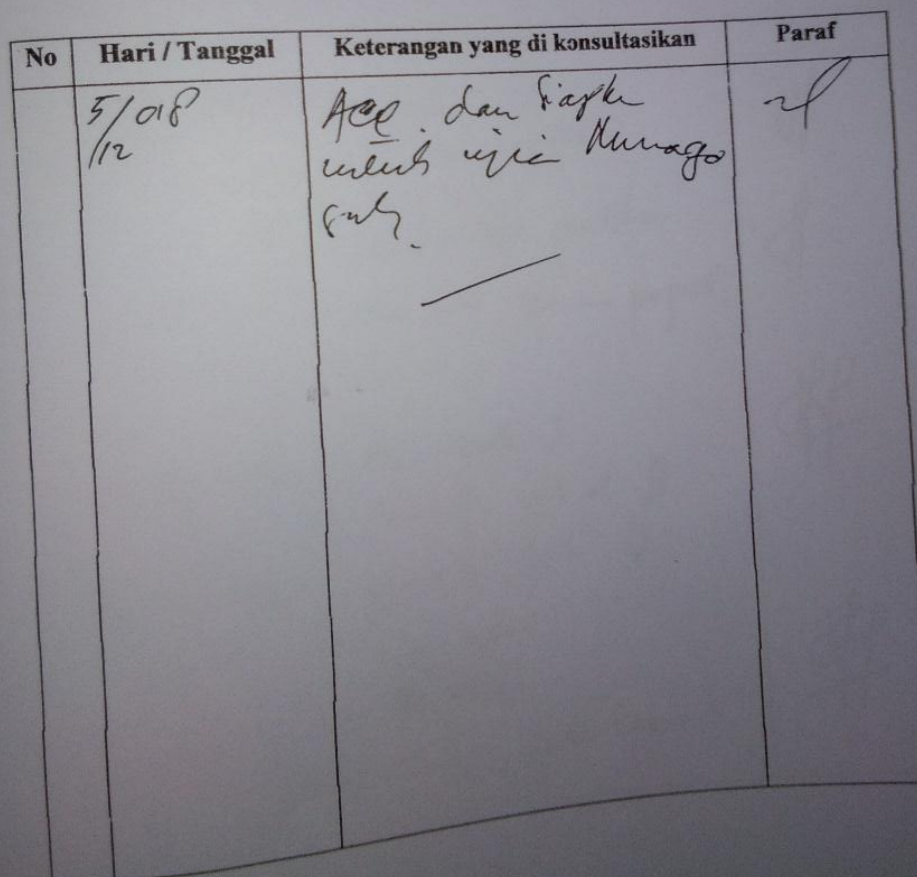 No Hari / Tanggal Keterangan yang di konsultasikan Paraf
5/018 Acc. dan siapkan
/12 untuk ujian